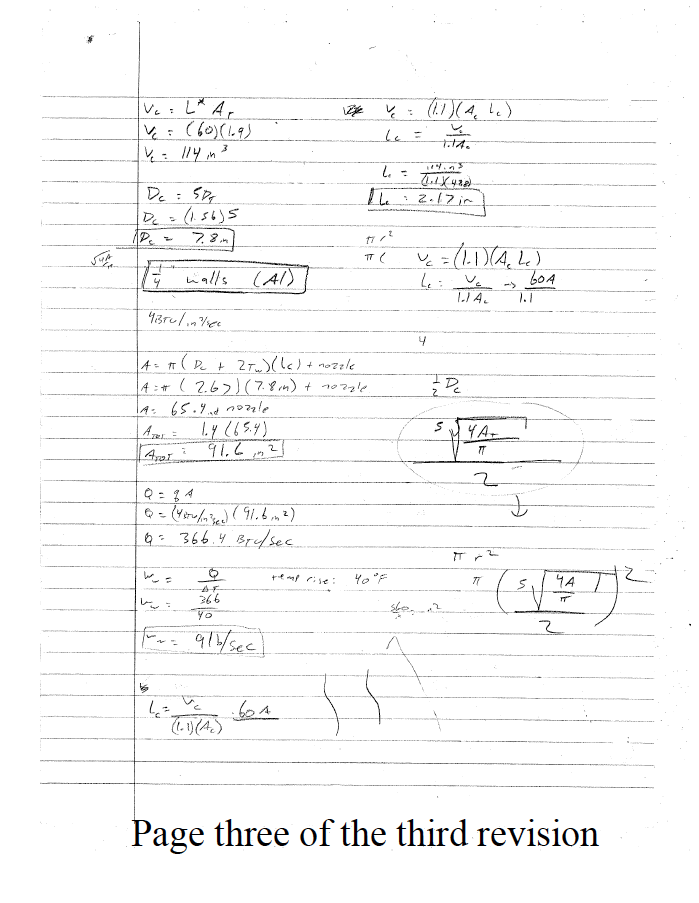 V_c = L* A_T
V_c = (60)(1.9)
V_c = 114 in³
D_c = 5D_T
D_c = (1.56)5
D_c = 7.8 in
1/4" walls (Al)
4BTU/in²/sec
A = π(D_c + 2T_w)(L_c) + nozzle
A = π(2.67)(7.8in) + nozzle
A = 65.4 nozzle
A_TOT = 1.4(65.4)
A_TOT = 91.6 in²
Q = qA
Q = (4BTU/in²/sec)(91.6in²)
Q = 366.4 BTU/sec
w_w = Q/ΔT temp rise: 40°F
w_w = 366/40
w_w = 9 lb/sec
L_c = V_c/(1.1)(A_c) 60A
V_c = (1.1)(A_c L_c)
L_c = V_c/1.1A_c
L_c = 114in³/(1.1)(478)
L_c = 2.17in
πr²
π(
V_c = (1.1)(A_c L_c)
L_c = V_c/1.1A_c → 60A/1.1
4
1/2 D_c
5√(4A_T/π)/2
↓
πr²
π(5√(4A/π)/2)²
Page three of the third revision